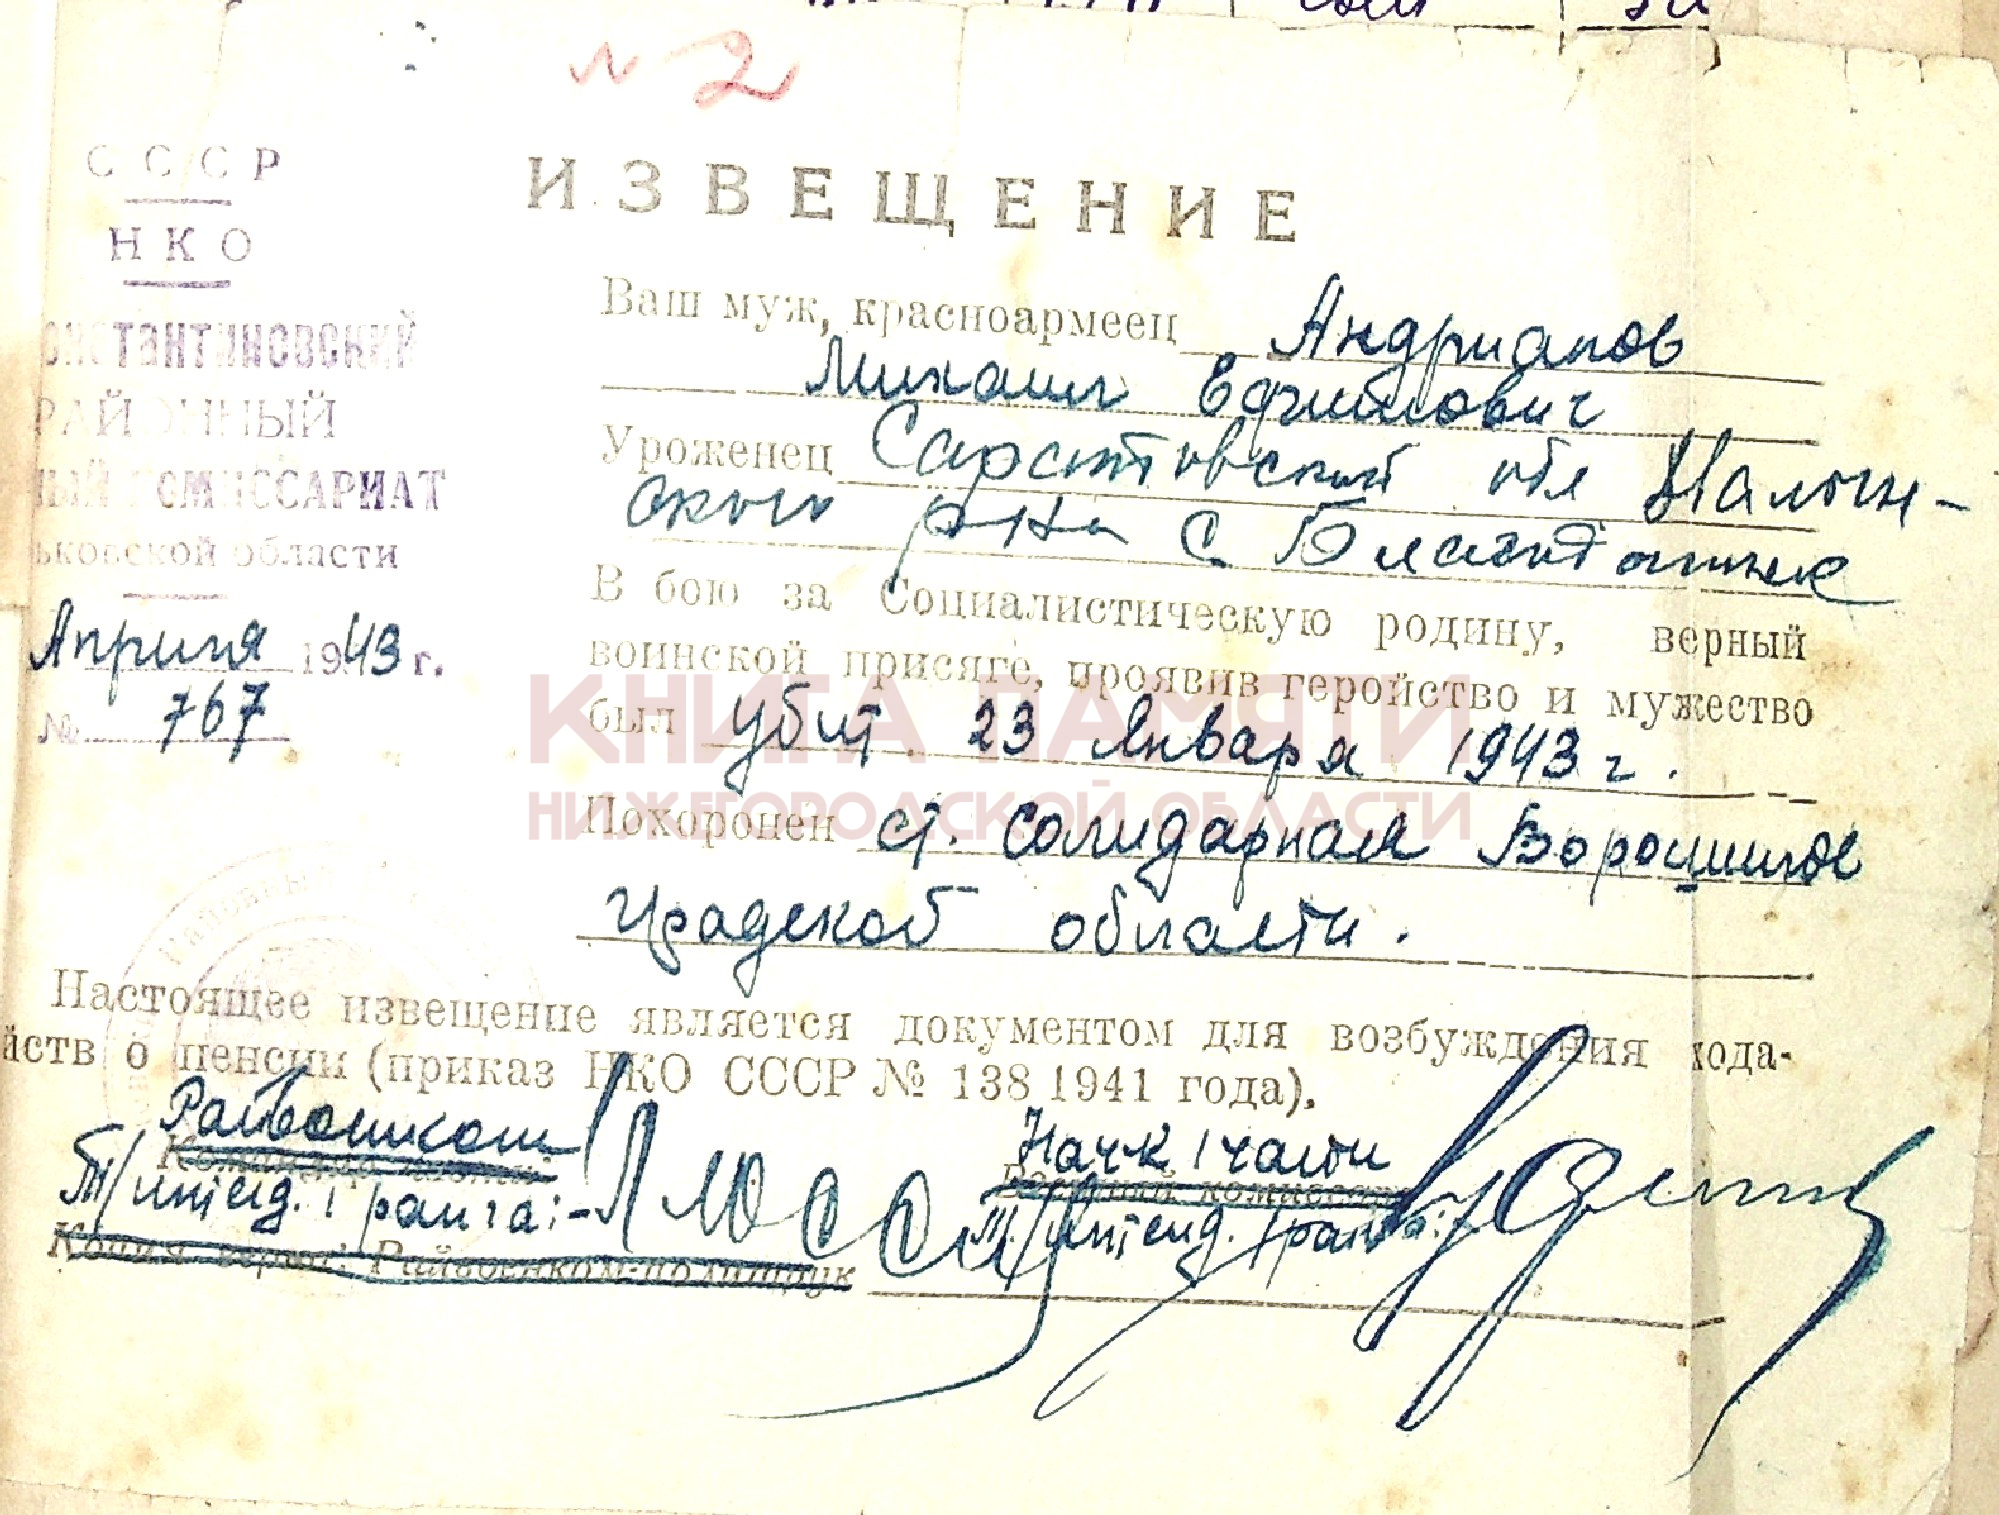 № 2
СССР
НКО
онстантиновский
РАЙОННЫЙ
ный КОМИССАРИАТ
ьковской области
Апреля 1943 г.
№ 767
ИЗВЕЩЕНИЕ
Ваш муж, красноармеец Андрианов
Михаил Ефимович
Уроженец Саратовской обл
ского р-на с.
В бою за Социалистическую родину, верный
воинской присяге, проявив геройство и мужество
был убит 23 Января 1943 г.
Похоронен ст. Солидарная Ворошилов
градской области.
Настоящее извещение является документом для возбуждения хода-
йств о пенсии (приказ НКО СССР № 138 1941 года).
Райвоенком
Командир части
Т/интенд. 1 ранга:-
Нач-к 1 части
Военный комиссар
Т/интенд. 1 ранга:
Копия верна: Райвоенком-политрук
КНИГА ПАМЯТИ
НИЖЕГОРОДСКОЙ ОБЛАСТИ